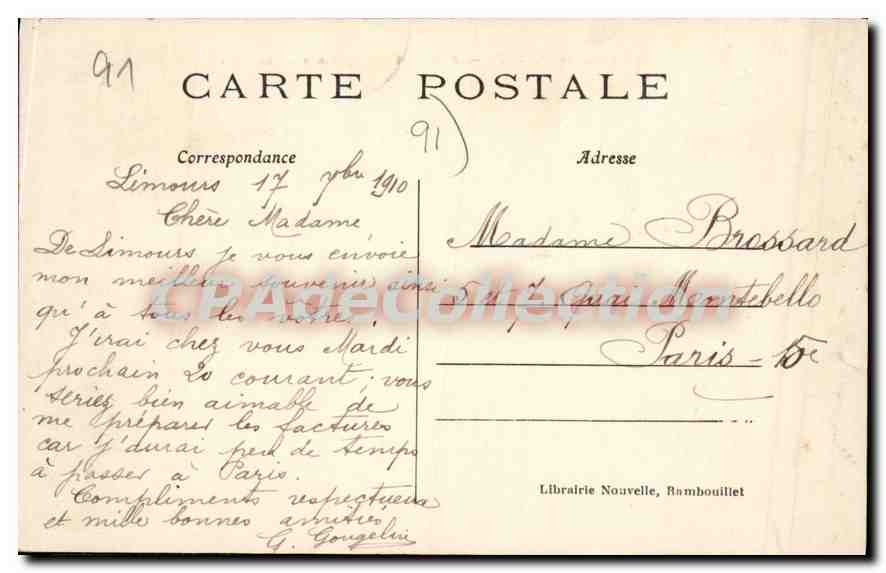 91
CARTE POSTALE
91
Correspondance
Adresse
Limours 17 7bre 1910
Chère Madame
De Limours je vous envoie
mon meilleur souvenir ainsi
qu'à tous les votre.
J'irai chez vous Mardi
prochain 20 courant; vous
seriez bien aimable de
me préparer les factures
car j'aurai peu de temps
à passer à Paris.
Compliments respectueux
et mille bonnes amitiés
G. Gougelin
Madame Brossard
5 et 7 Quai Montebello
Paris - 5e
Librairie Nouvelle, Rambouillet
CPAdeCollection